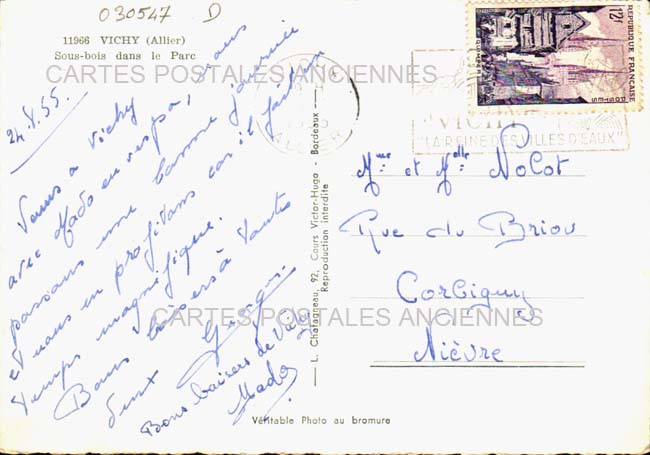 030547 D
11966 VICHY (Allier)
Sous-bois dans le Parc
24.X.55.
Venus a Vichy
avec Mado en vespa, nous
passons une bonne journée
nous en profitons car il fait un
temps magnifique.
Bons baisers à toutes
deux
Bons baisers de Vichy
Mado
L. Chatagneau, 92, Cours Victor-Hugo - Bordeaux -
Reproduction interdite
Véritable Photo au bromure
REPUBLIQUE FRANÇAISE
12F
POSTES
ALLIER
VICHY
"LA REINE DES VILLES D'EAUX"
Mme et Melle Nolot
Rue du Briou
Corbigny
Nièvre
CARTES POSTALES ANCIENNES
CARTES POSTALES ANCIENNES